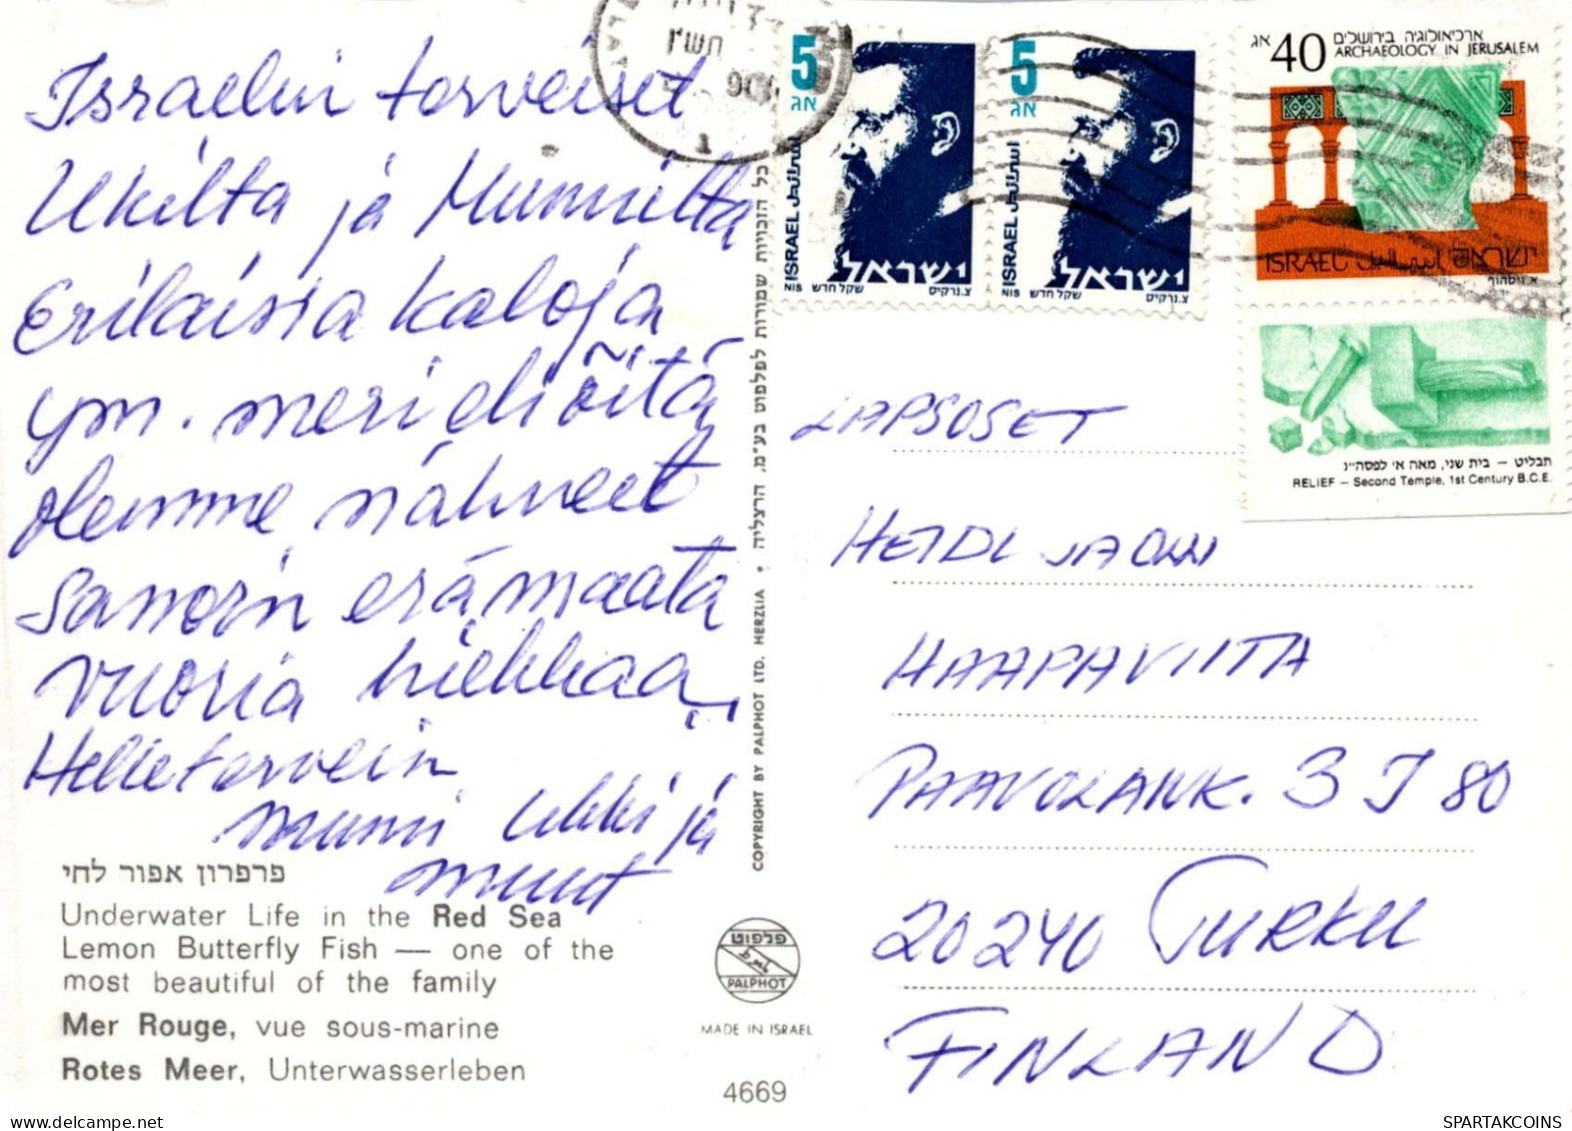 Israelin terveiset
Ukilta ja Mummilta
Erilaisia kaloja
ym. meri eliöitä
olemme nähneet
Sanoin erämaata
vuoria hiekkaa,
Helletervein
mummi Ukki ja
muut
פרפרון אפור לחי
Underwater Life in the Red Sea
Lemon Butterfly Fish — one of the
most beautiful of the family
Mer Rouge, vue sous-marine
Rotes Meer, Unterwasserleben
COPYRIGHT BY PALPHOT LTD. HERZLIA • כל הזכויות שמורות לפלפוט בע"מ, הרצליה
פלפוט
PALPHOT
MADE IN ISRAEL
4669
תש"ן
5
אג
ISRAEL اسرائيل
ישראל
NIS שקל חדש צ.נרקיס
5
אג
ISRAEL اسرائيل
ישראל
NIS שקל חדש צ.נרקיס
אג 40 ארכיאולוגיה בירושלים
ARCHAEOLOGY IN JERUSALEM
ISRAEL اسرائيل ישראל
תבליט – בית שני, מאה א' לפסה"נ
RELIEF – Second Temple, 1st Century B.C.E.
LAPSOSET
HEIDI
HAAPAVIITA
PAAVOLANK. 3 J 80
20240 TURKU
FINLAND
SPARTAKCOINS